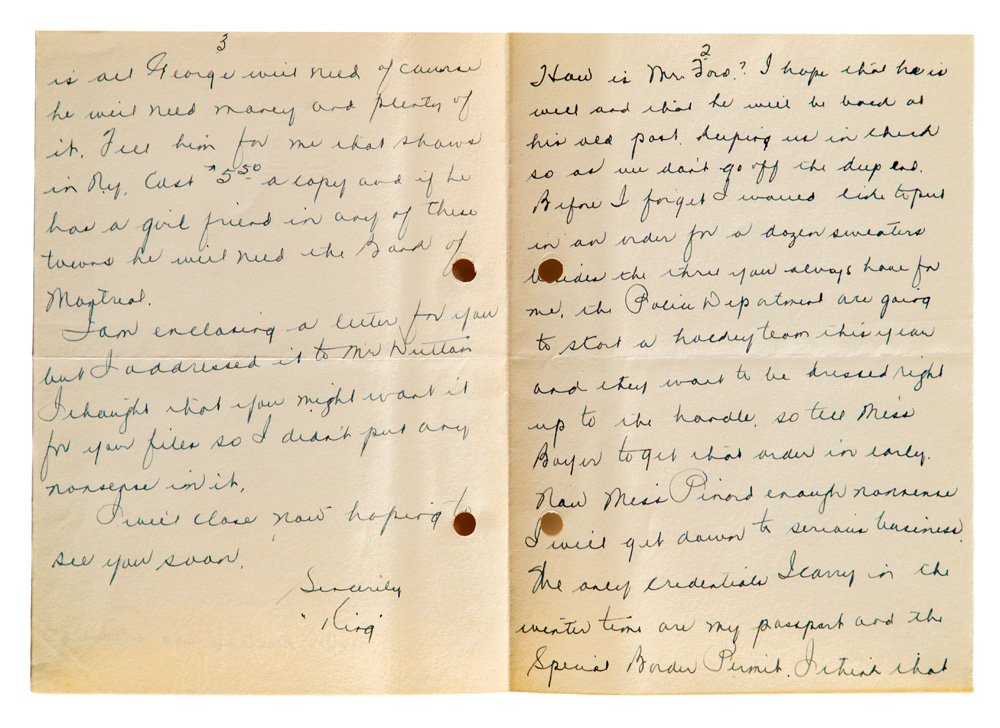 2
How is Mr. Ford? I hope that he is
well and that he will be back at
his old post. keeping us in check
so as we don't go off the deep end.
Before I forget I would like to put
in an order for a dozen sweaters
besides the three you always have for
me, the Police Department are going
to start a hockey team this year
and they want to be dressed right
up to the handle, so tell Miss
Boyer to get that order in early.
Now Miss Pinard enough nonsense
I will get down to serious business.
The only credentials I carry in the
winter time are my passport and the
Special Border Permit. I think that
3
is all George will need of course
he will need money and plenty of
it. Tell him for me that shows
in N.y. Cost $5.50 a copy and if he
has a girl friend in any of these
towns he will need the Bank of
Montreal.
I am enclosing a letter for you
but I addressed it to Mr Dutton
I thought that you might want it
for your files so I didn't put any
nonsense in it.
I will close now hoping to
see you soon.
Sincerely
"King"